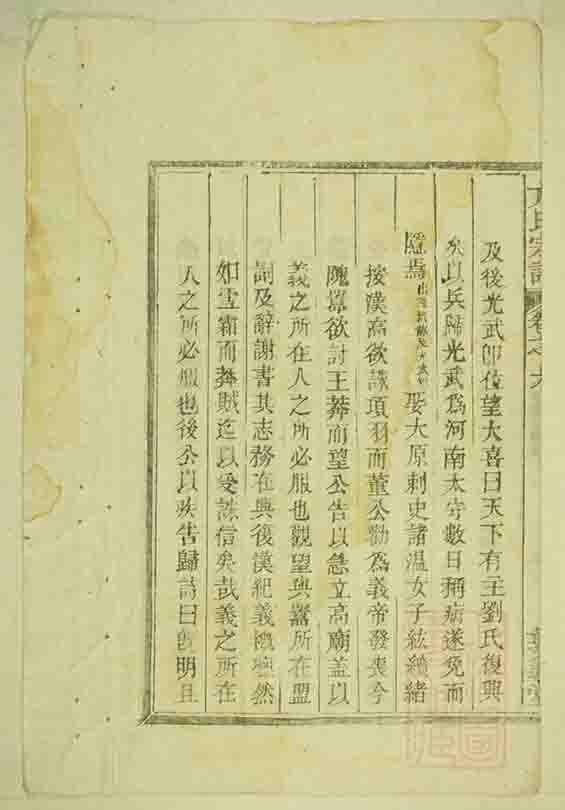 方氏宗譜 卷之六
及後光武卽位望大喜曰天下有主劉氏復興
矣以兵歸光武爲河南太守數日稱病遂免而
隱焉娶大原刺史諸温女子紘續緒
按漢高欲誅項羽而董公勸爲義帝發喪今
隗囂欲討王莽而望公告以急立高廟盖以
義之所在人之所必服也觀望與囂所在盟
詞及辭謝書其志務在興復漢紀義概凜然
如雪霜而莽賊迄以受誅信矣哉義之所在
人之所必服也後公以疾告歸詩曰旣明且